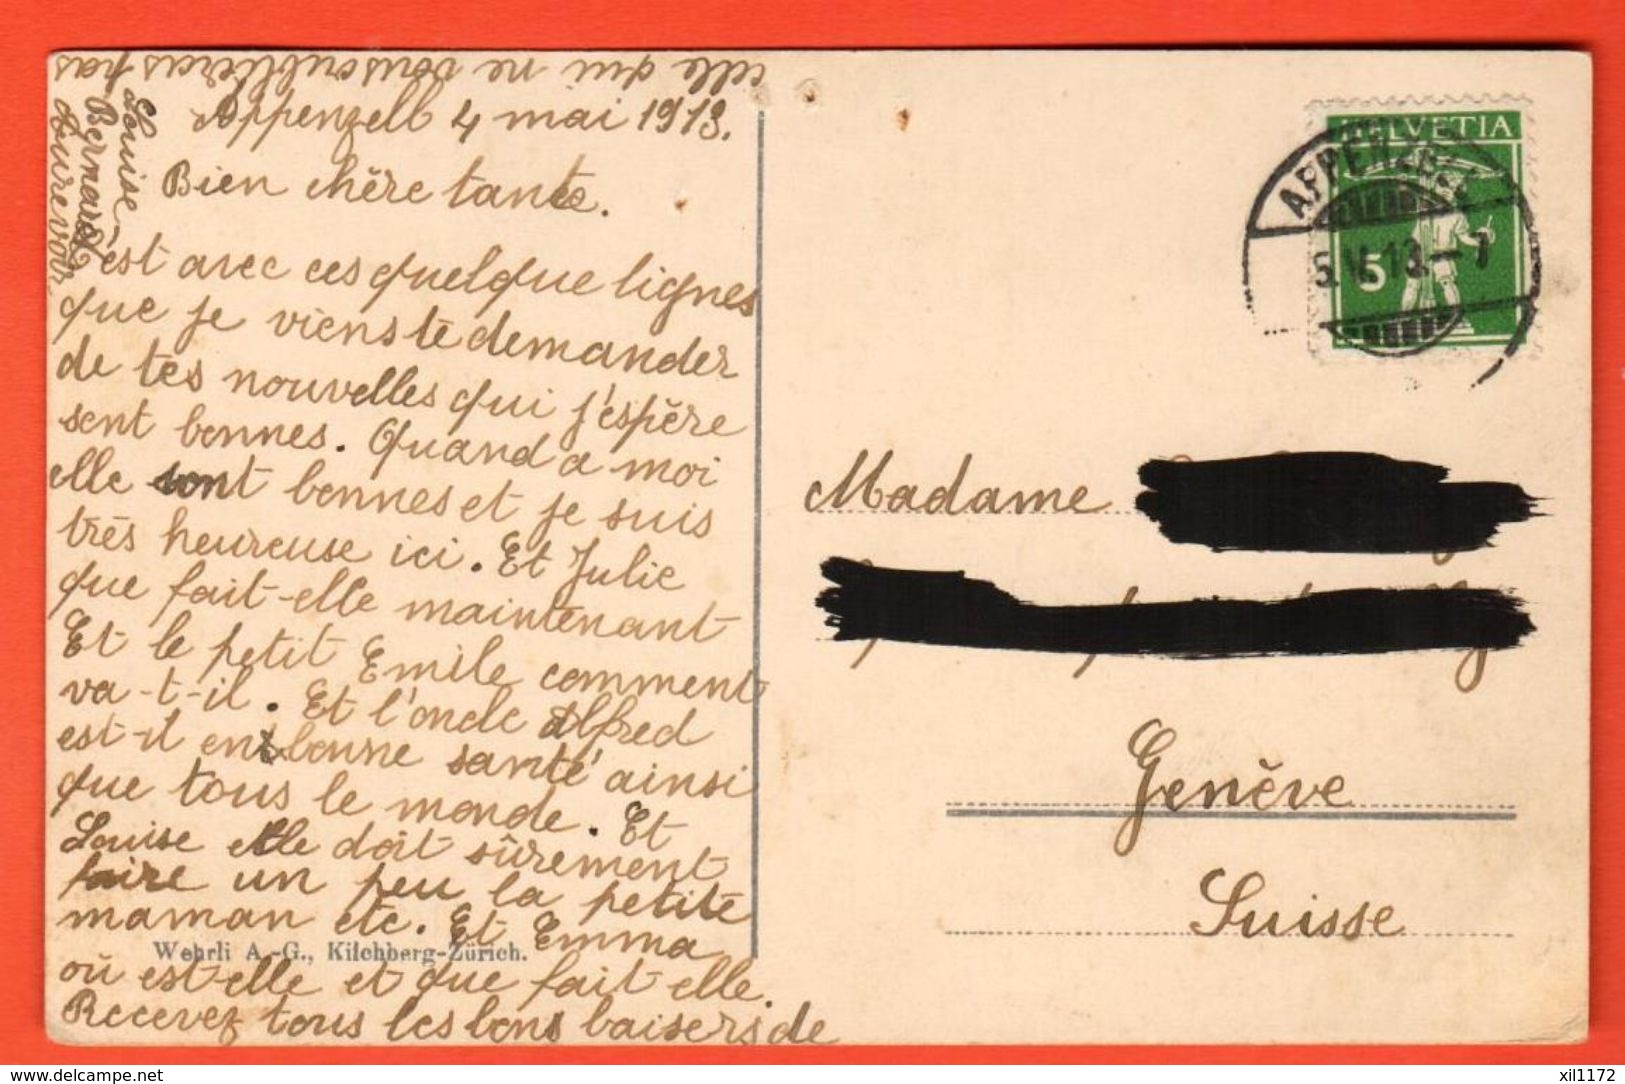 Appenzell 4 mai 1913.
Bien chère tante.
C'est avec ces quelque lignes
que je viens te demander
de tes nouvelles qui j'espère
sont bonnes. Quand a moi
elle sont bonnes et je suis
très heureuse ici. Et Julie
que fait-elle maintenant
Et le petit Emile comment
va-t-il. Et l'oncle Alfred
est-il en bonne santé ainsi
que tous le monde. Et
Louise elle doit sûrement
faire un peu la petite
maman etc. Et Emma
où est-elle et que fait elle.
Recevez tous les bons baisers de
celle qui ne vous oublieras pas
Louise
Bernard
Aurevoir
Wehrli A.-G., Kilchberg-Zürich.
HELVETIA
5
APPENZELL
5.V.13.–7
Madame
Genève
Suisse
delcampe.net
xil1172